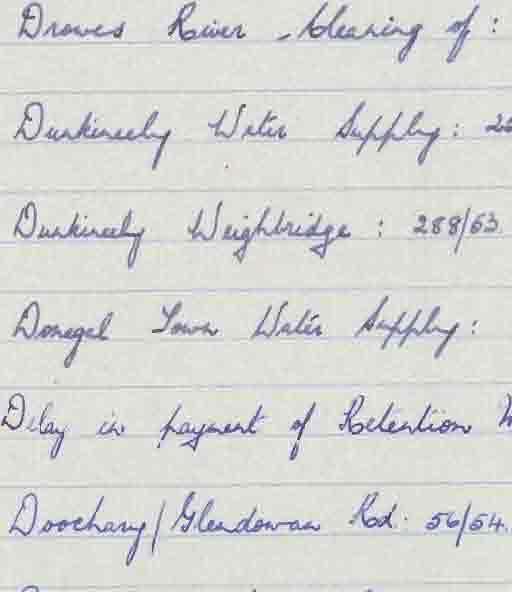 Drowes River - Clearing of :
Dunkineely Water Supply : 22
Dunkineely Weighbridge : 288/63
Donegal Town Water Supply :
Delay in payment of Retention
Doochary/Glendowan Rd. 56/54.